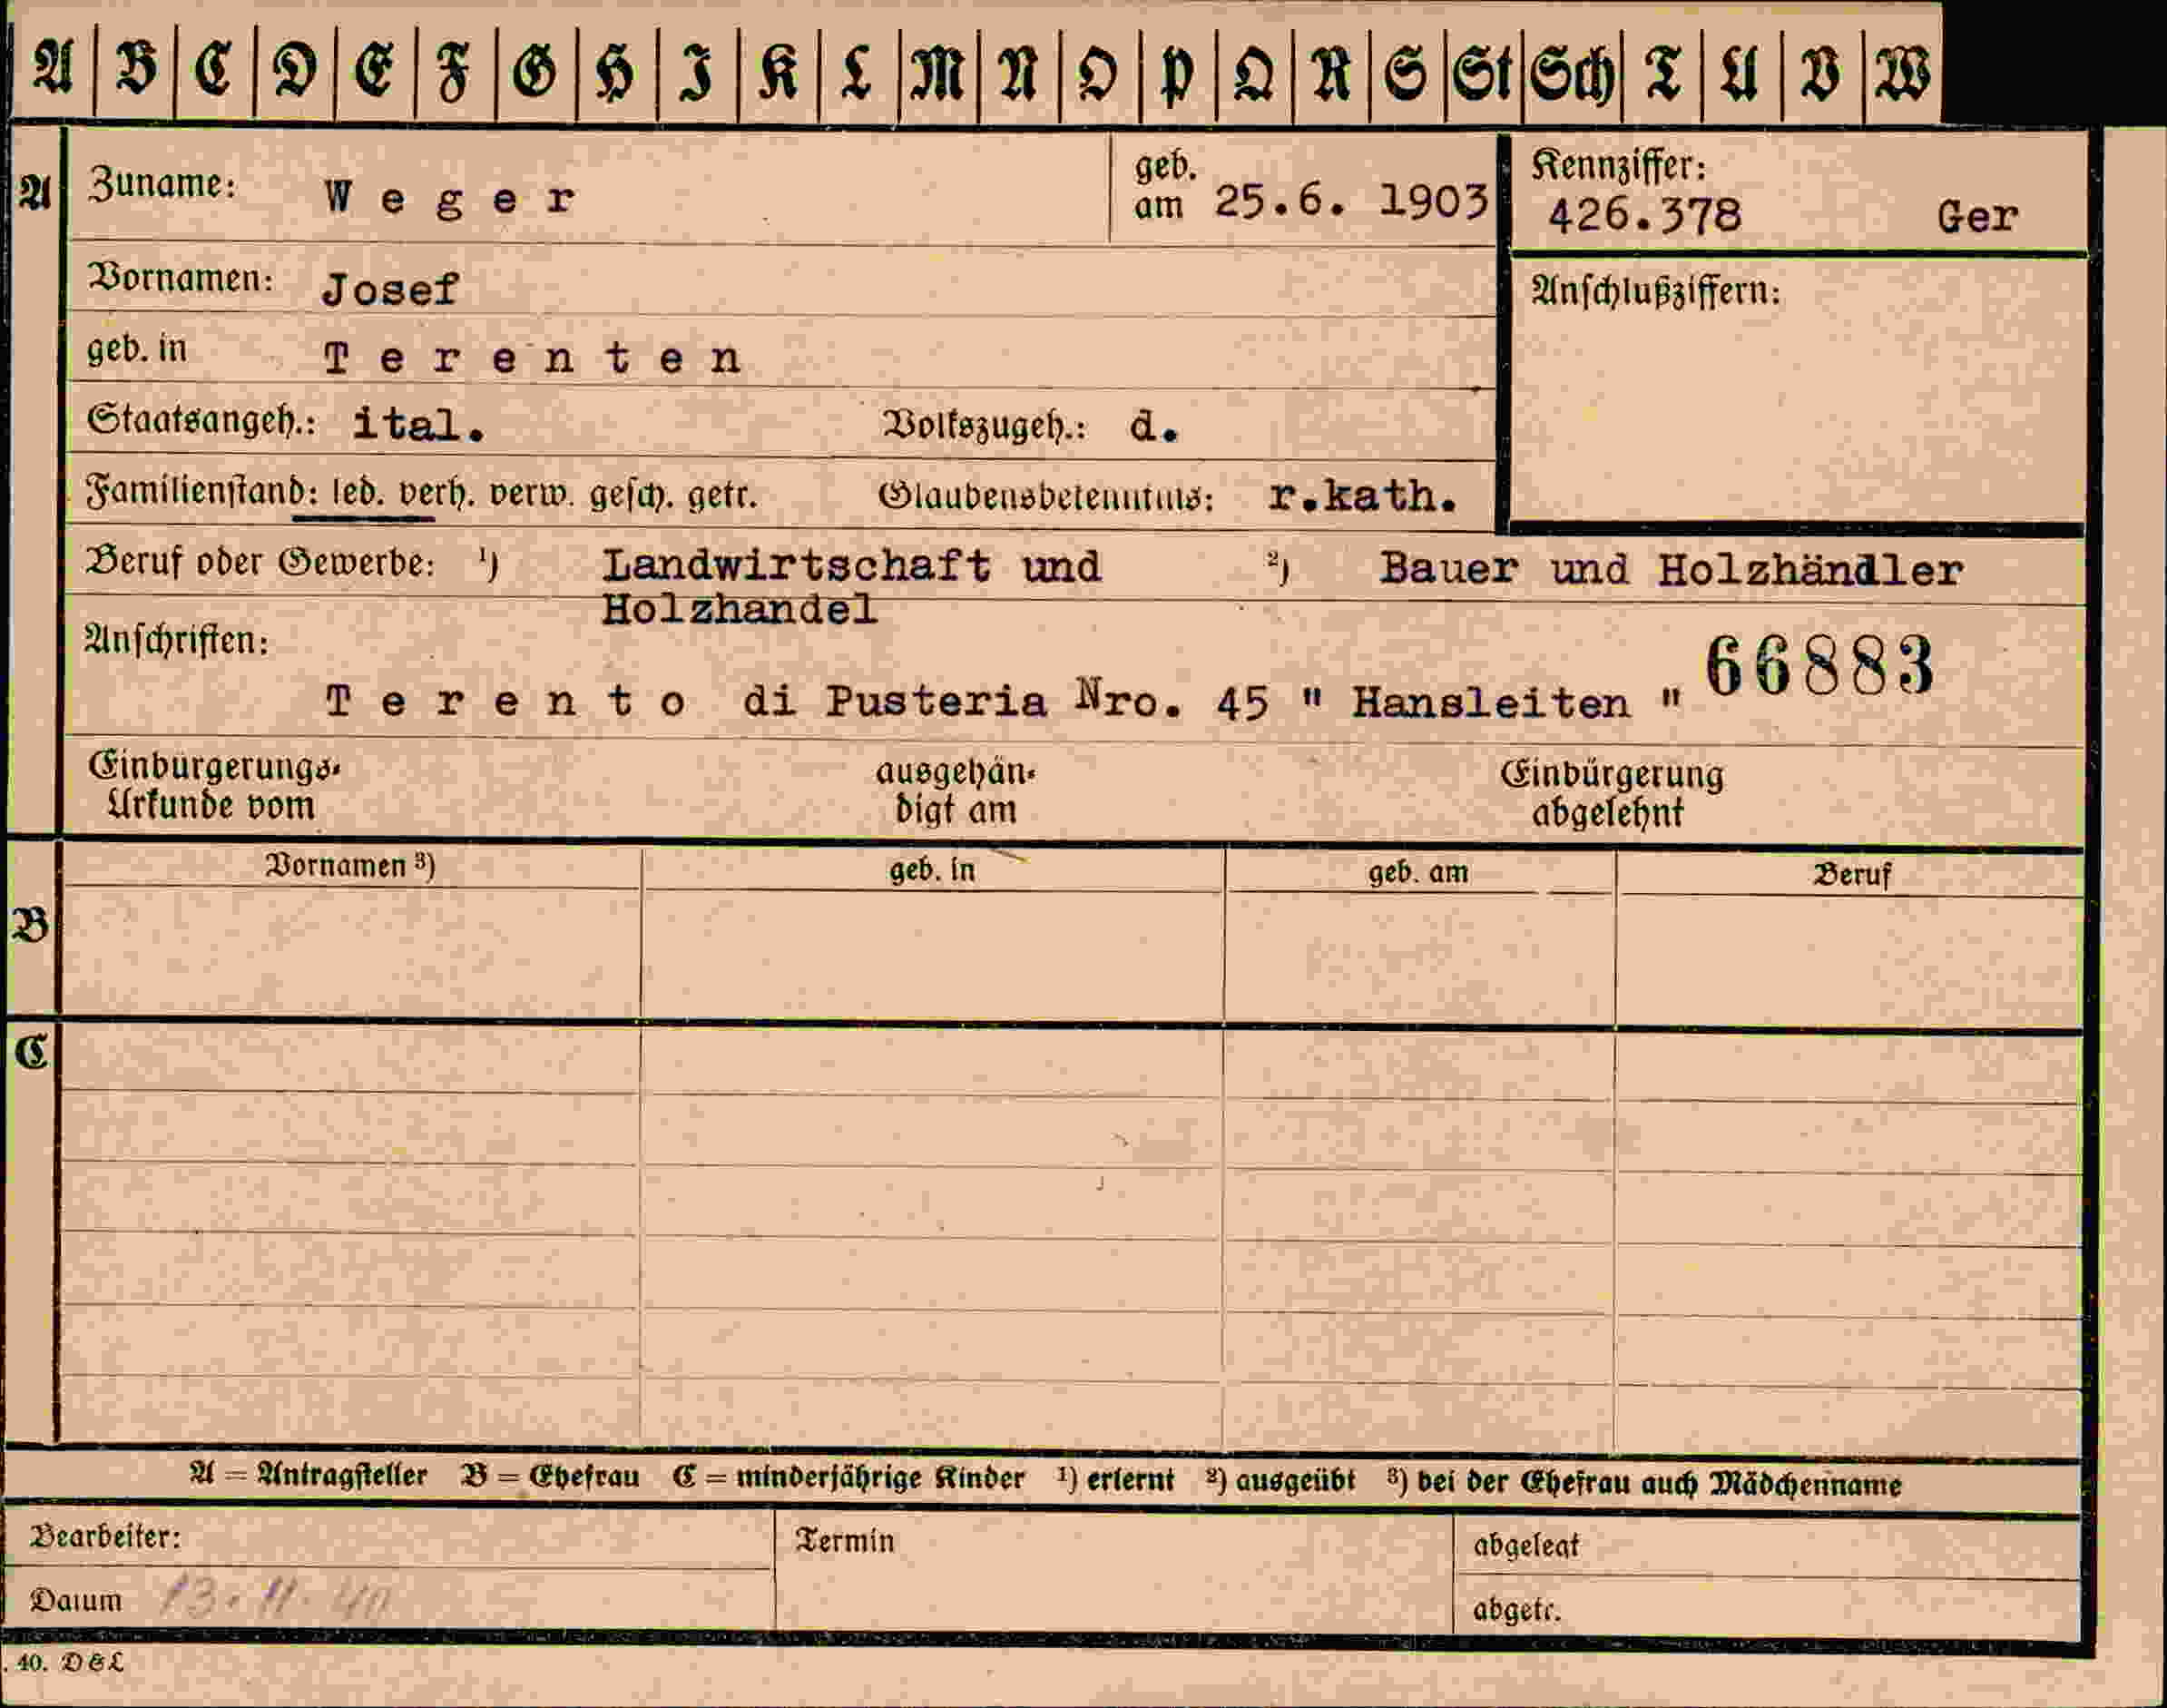 A B C D E F G H I K L M N O P Q R S St Sch T U V W
A Zuname: Weger geb. am 25.6. 1903 Kennziffer: 426.378 Ger
Vornamen: Josef Anschlußziffern:
geb. in Terenten
Staatsangeh.: ital. Volkszugeh.: d.
Familienstand: led. verh. verw. gesch. getr. Glaubensbekenntnis: r.kath.
Beruf oder Gewerbe: ¹) Landwirtschaft und ²) Bauer und Holzhändler
Holzhandel
Anschriften: 66883
Terento di Pusteria Nro. 45 " Hansleiten "
Einbürgerungs- ausgehän- Einbürgerung
Urkunde vom digt am abgelehnt
Vornamen ³) geb. in geb. am Beruf
B
C
A = Antragsteller B = Ehefrau C = minderjährige Kinder ¹) erlernt ²) ausgeübt ³) bei der Ehefrau auch Mädchenname
Bearbeiter: Termin abgelegt
Datum 13.11.40 abgetr.
. 40. DEL